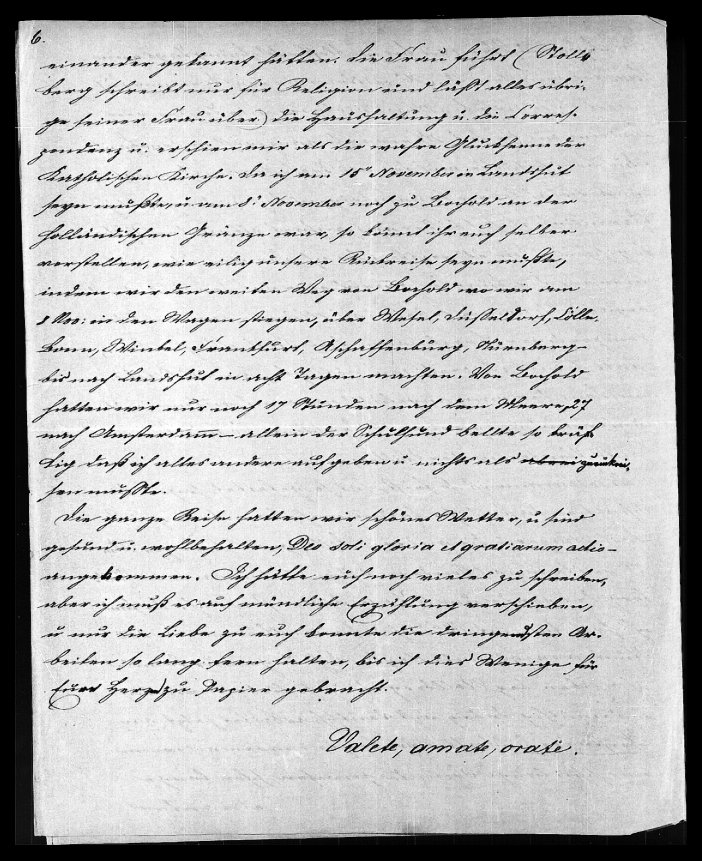 6.
einander gekannt hätten. Die Frau führt (Stoll-
berg schreibt nur für Religion und läßt alles übri-
ge seiner Frau über) die Haushaltung u. die Corres-
pondenz u. erschien mir als die wahre Gluckhenne der
katholischen Kirche. Da ich am 15t November in Landshut
seyn mußte, u. am 8t November noch zu Bochold an der
holländischen Gränze war, so könnt ihr euch selber
vorstellen, wie eilig unsere Rückreise seyn mußte,
indem wir den weiten Weg von Bochold wo wir am
8 Nov: in den Wagen stiegen, über Wesel, Düsseldorf, Cölln,
Bonn, Winkel, Frankfurt, Aschaffenburg, Nürnberg-
bis nach Landshut in acht Tagen machten. Von Bochold
hatten wir nur noch 17 Stunden nach dem Meere, 27
nach Amsterdamm – allein der Schulhund bellte so kräf-
tig daß ich alles andere aufgeben u nichts als zurükrei,
sen mußte.
Die ganze Reise hatten wir schönes Wetter, u sind
gesund u. wohlbehalten, Deo soli gloria et gratiarum actio –
angekommen. Ich hätte euch noch vieles zu schreiben,
aber ich muß es auf mündliche Erzählung verschieben,
u nur die Liebe zu euch konnte die dringendsten Ar-
beiten so lang fern halten, bis ich dies Wenige für
Euer Herz zu Papier gebracht.
Valete, amate, orate.